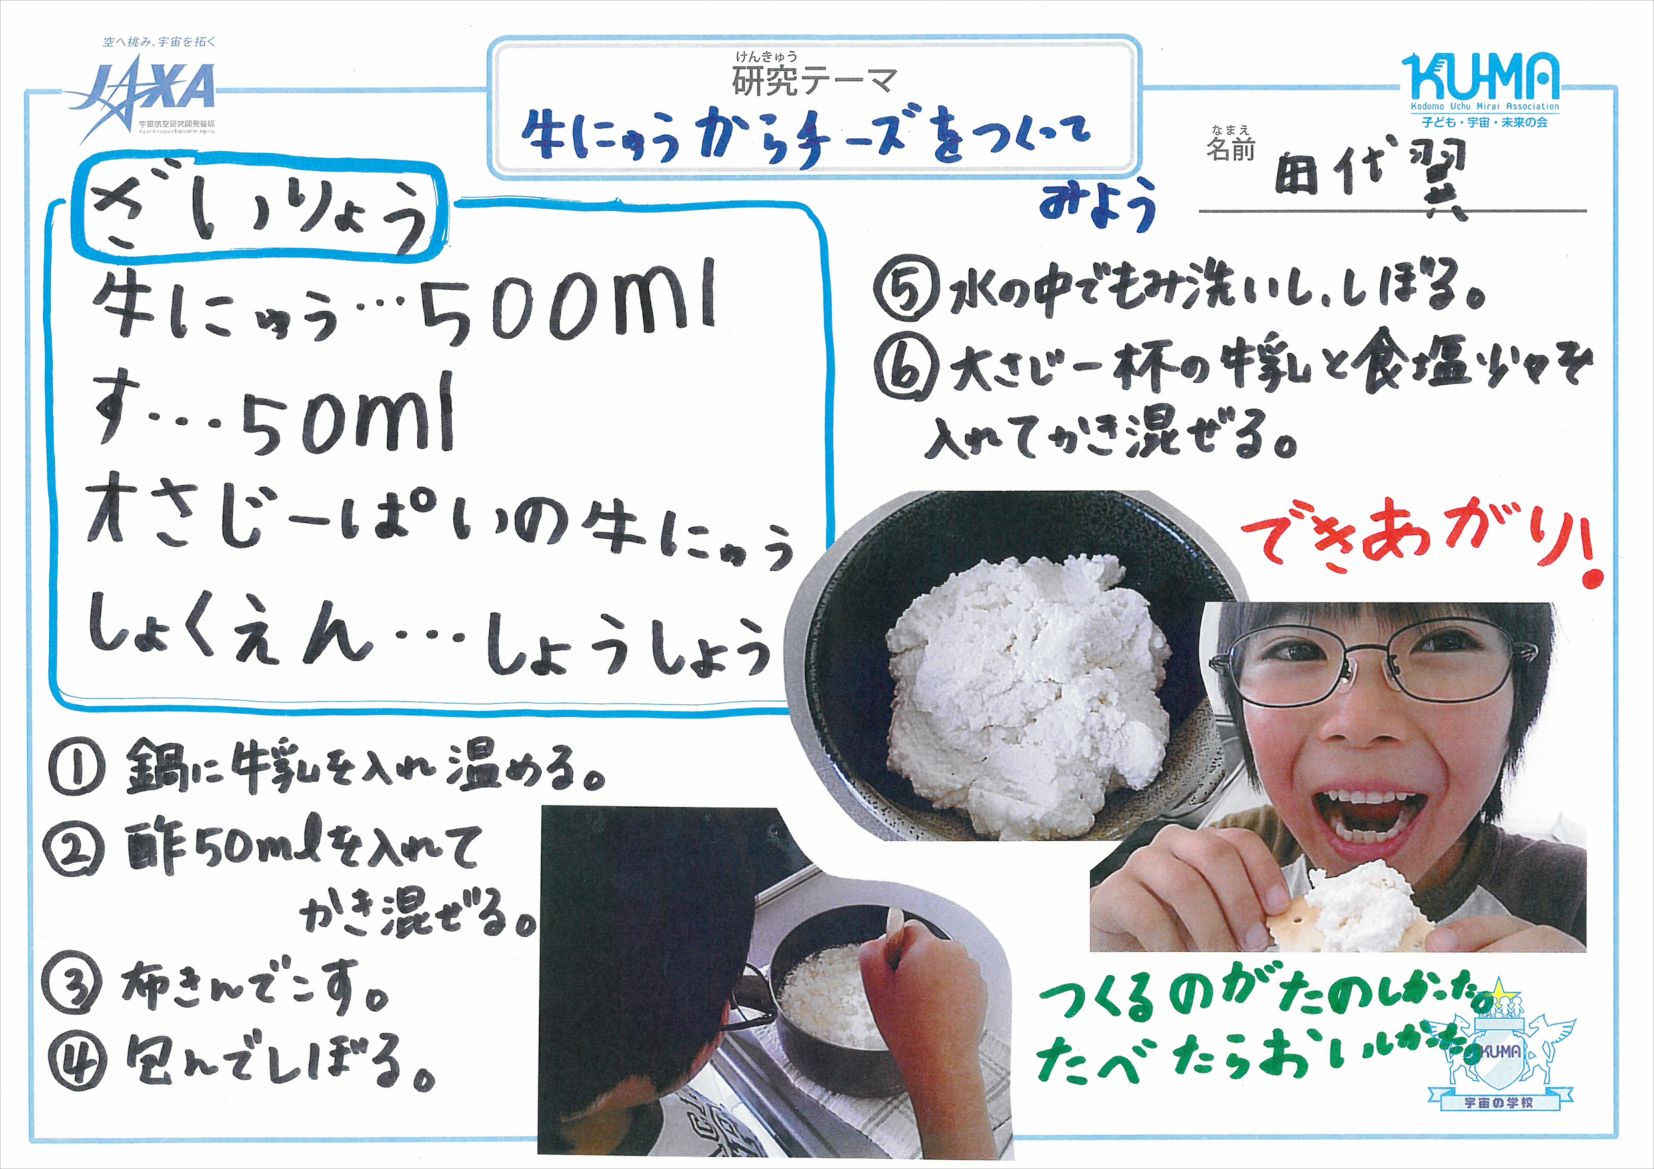 空へ挑み、宇宙を拓く
JAXA
宇宙航空研究開発機構
Japan Aerospace Exploration Agency
けんきゅう
研究テーマ
牛にゅうからチーズをつくって
みよう
KU-MA
Kodomo Uchu Mirai Association
子ども・宇宙・未来の会
なまえ
名前 田代翼
ざいりょう
牛にゅう…500ml
す…50ml
大さじーぱいの牛にゅう
しょくえん…しょうしょう
①鍋に牛乳を入れ温める。
②酢50mlを入れて
かき混ぜる。
③布きんでこす。
④包んでしぼる。
⑤水の中でもみ洗いし、しぼる。
⑥大さじ一杯の牛乳と食塩少々を
入れてかき混ぜる。
できあがり!
つくるのがたのしかった。
たべたらおいしかった。
KU-MA
宇宙の学校